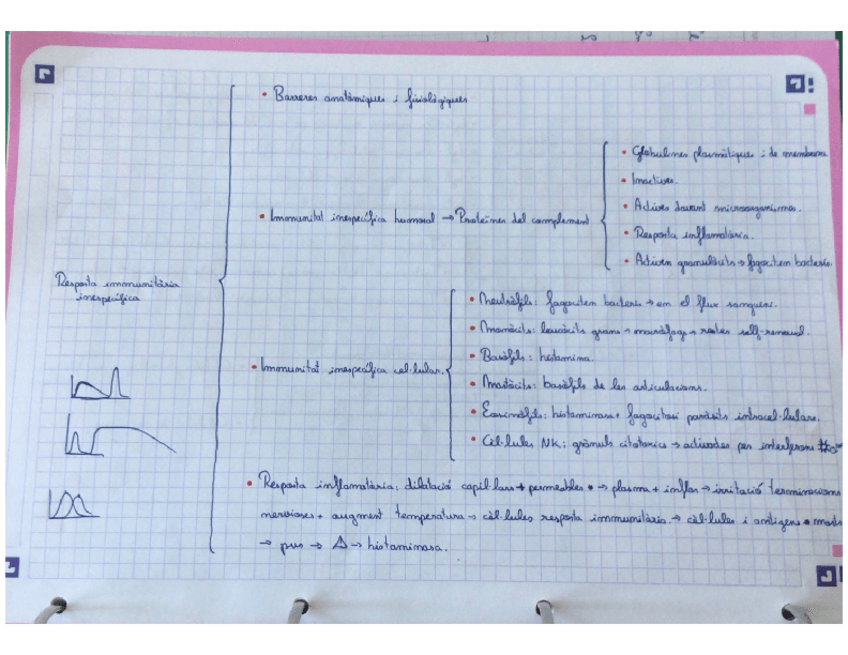 • Barreres anatòmiques i fisiològiques
• Immunitat inespecífica humoral → Proteïnes del complement
• Globulines plasmàtiques i de membrana
• Inactives.
• Actives davant microorganismes.
• Resposta inflamatòria.
• Activen granulòcits → fagociten bacteris.
Resposta immunitària
inespecífica
• Immunitat inespecífica cel·lular.
• Neutròfils: fagociten bacteris → en el flux sanguini.
• Monòcits: leucòcits grans → macròfags → restes self-renewal.
• Basòfils: histamina.
• Mastòcits: basòfils de les articulacions.
• Eosinòfils: histaminasa + fagocitosi paràsits intracel·lulars.
• Cèl·lules NK: grànuls citotòxics → activades per interferons
• Resposta inflamatòria: dilatació capil·lars + permeables → plasma + inflor → irritació terminacions
nervioses + augment temperatura → cèl·lules resposta immunitària. → cèl·lules i antígens morts
→ pus → Δ → histaminasa.